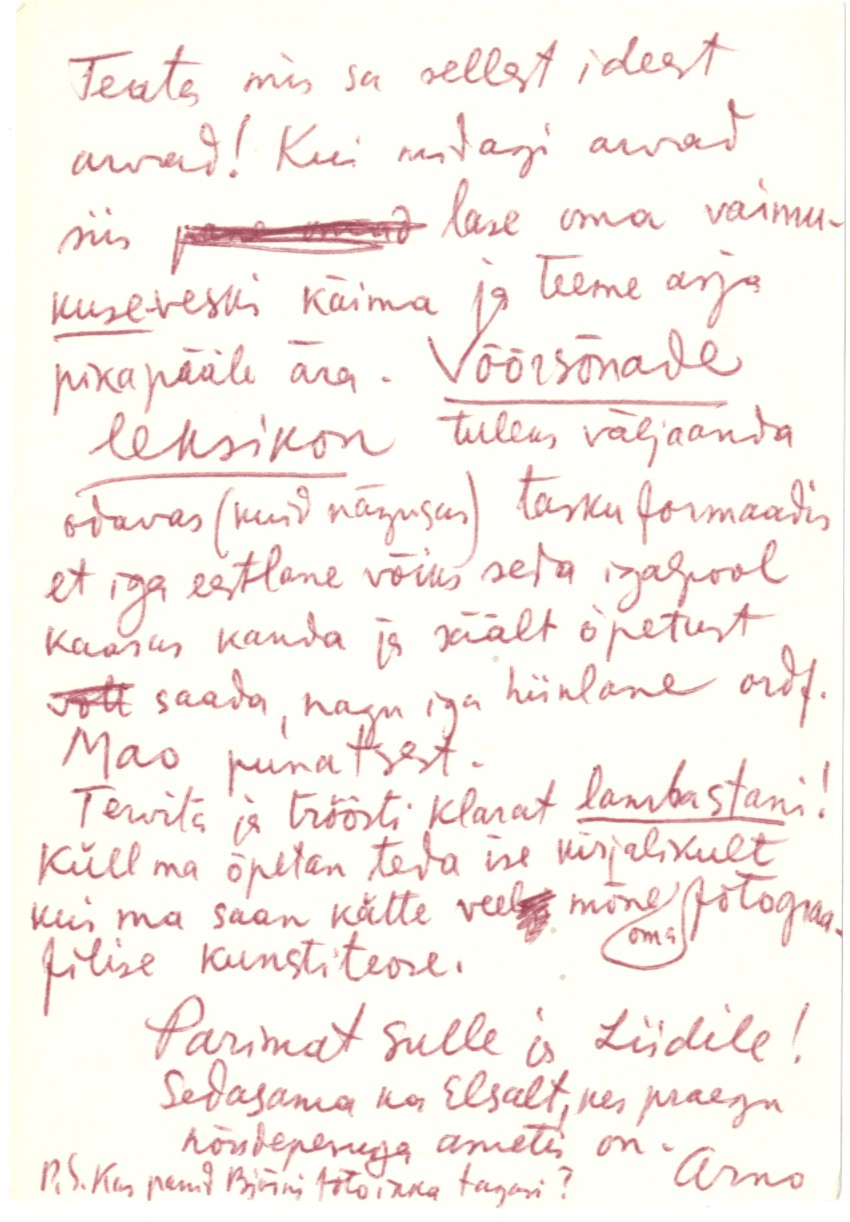 Teata mis sa sellest ideest
arvad! Kui midagi arvad
siis lase oma vaimu-
kuse-veski käima ja teeme asja
pikapääle ära. Võõrsõnade
leksikon tuleks väljaanda
odavas (kuid nägusas) taskuformaadis
et iga eestlane võiks seda igalpool
kaasas kanda ja säält õpetust
saada, nagu iga hiinlane
Mao punatsest.
Tervita ja tröösti Klarat lambastani!
Küll ma õpetan teda ise kirjalikult
kui ma saan kätte veel mõne oma fotograa-
filise kunstiteose.
Parimat Sulle ja Liidile!
Sedasama ka Elsalt, kes praegu
nõudepesuga ametis on.
Arno
P.S. Kas panid Björni foto ikka tagasi?